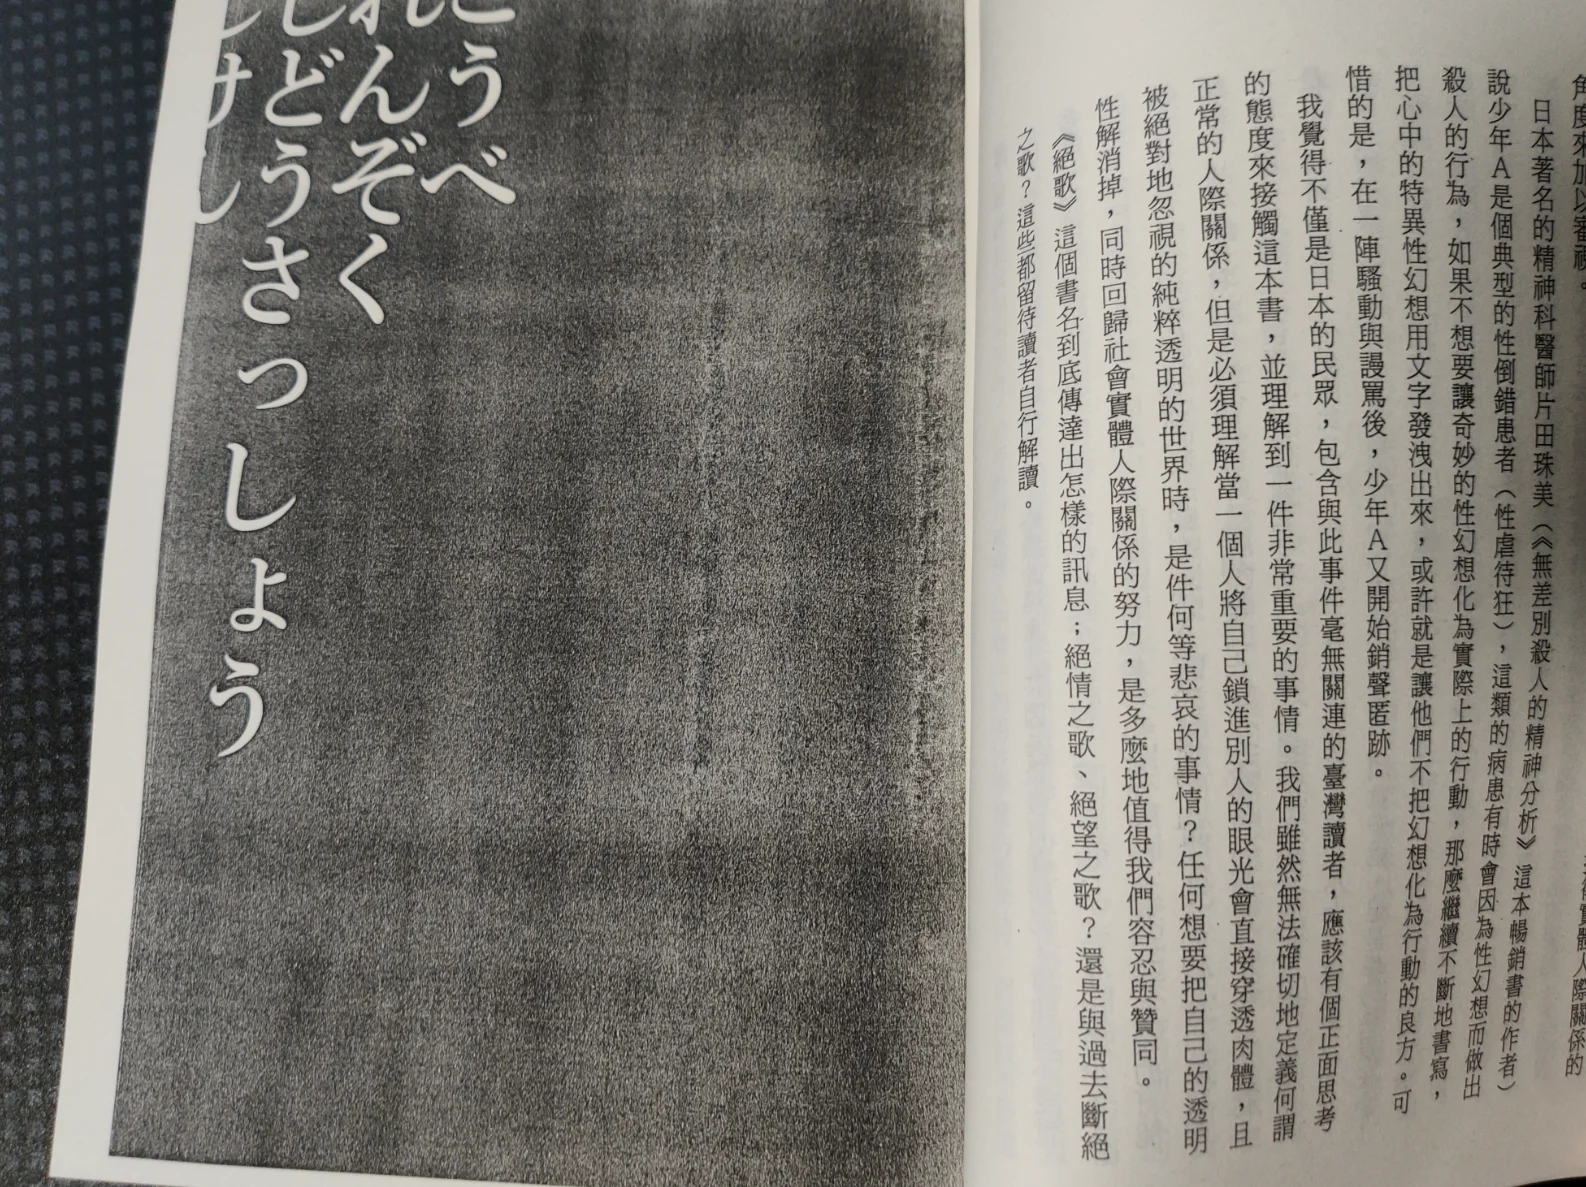 角度來加以審視。
日本著名的精神科醫師片田珠美（《無差別殺人的精神分析》這本暢銷書的作者）
說少年A是個典型的性倒錯患者（性虐待狂），這類的病患有時會因為性幻想而做出
殺人的行為，如果不想要讓奇妙的性幻想化為實際上的行動，那麼繼續不斷地書寫，
把心中的特異性幻想用文字發洩出來，或許就是讓他們不把幻想化為行動的良方。可
惜的是，在一陣騷動與謾罵後，少年A又開始銷聲匿跡。
我覺得不僅是日本的民眾，包含與此事件毫無關連的臺灣讀者，應該有個正面思考
的態度來接觸這本書，並理解到一件非常重要的事情。我們雖然無法確切地定義何謂
正常的人際關係，但是必須理解當一個人將自己鎖進別人的眼光會直接穿透肉體，且
被絕對地忽視的純粹透明的世界時，是件何等悲哀的事情？任何想要把自己的透明
性解消掉，同時回歸社會實體人際關係的努力，是多麼地值得我們容忍與贊同。
《絕歌》這個書名到底傳達出怎樣的訊息；絕情之歌、絕望之歌？還是與過去斷絕
之歌？這些都留待讀者自行解讀。
こうべ
れんぞく
じどうさっしょう
じけん